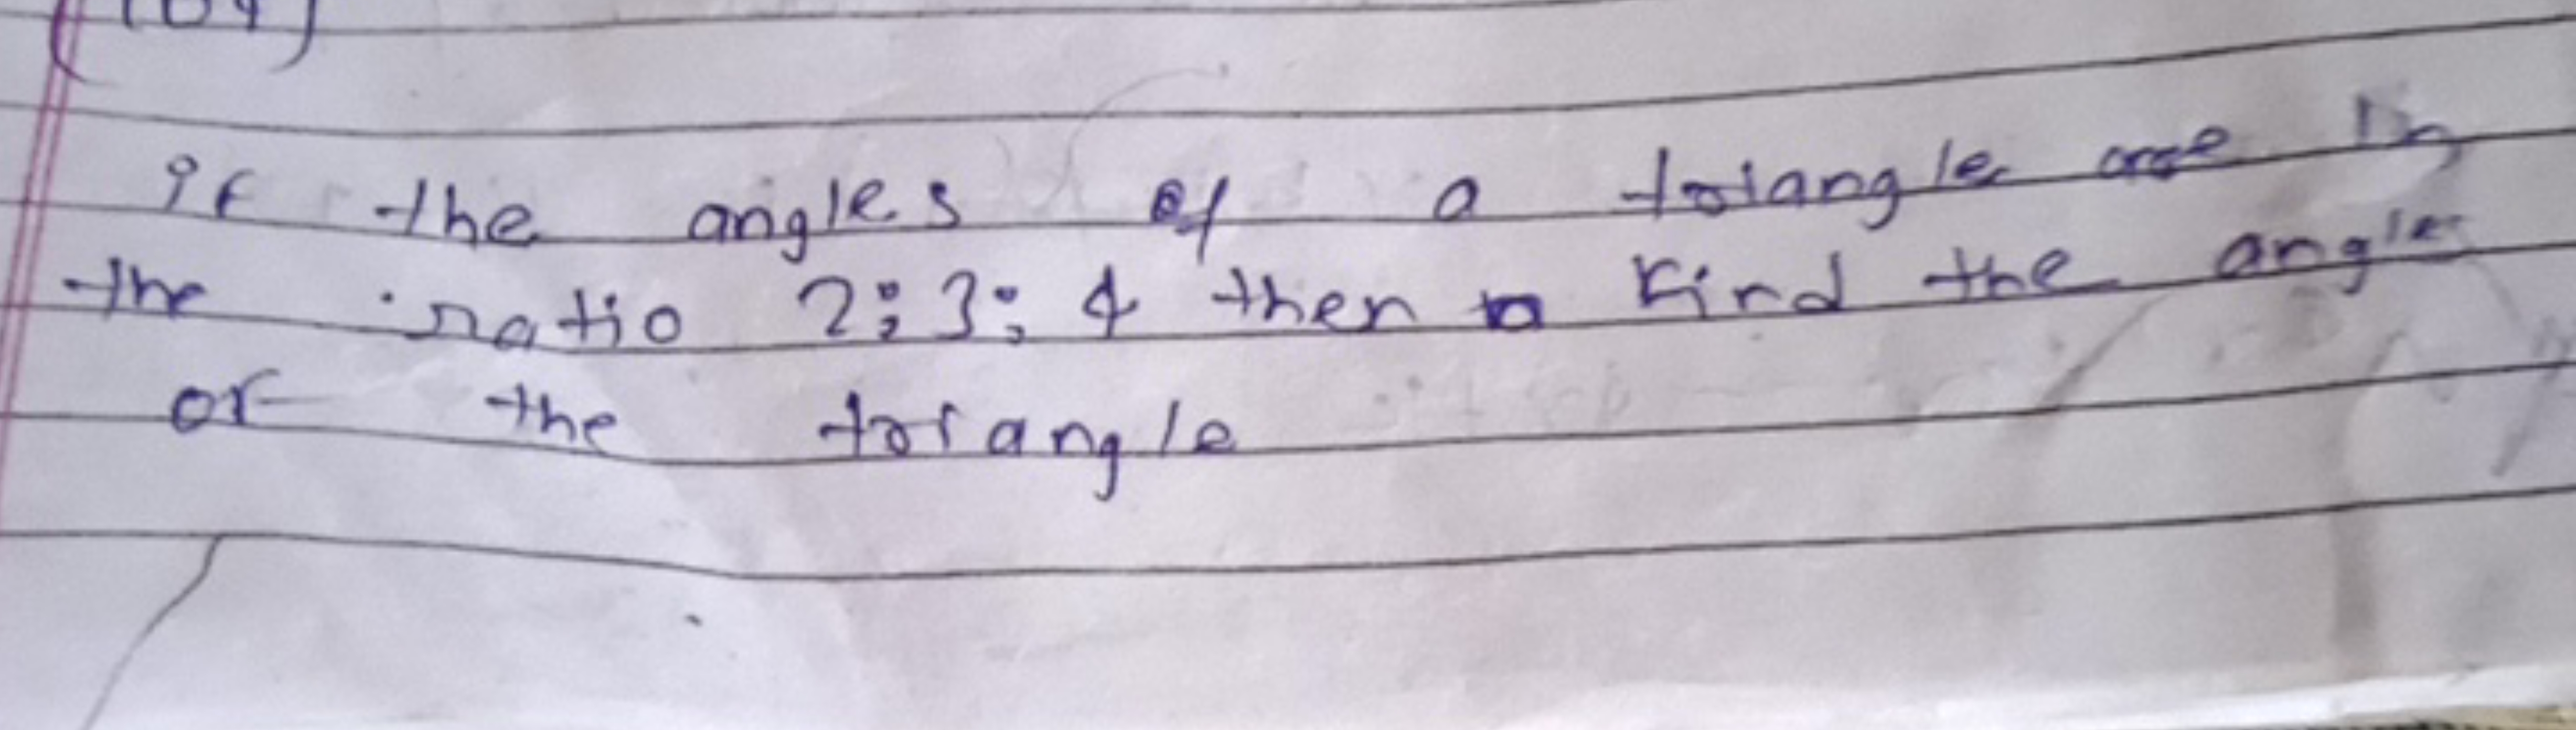 if the angles of a triangle are in
the ratio 2:3:4 then find the angles
of the triangle